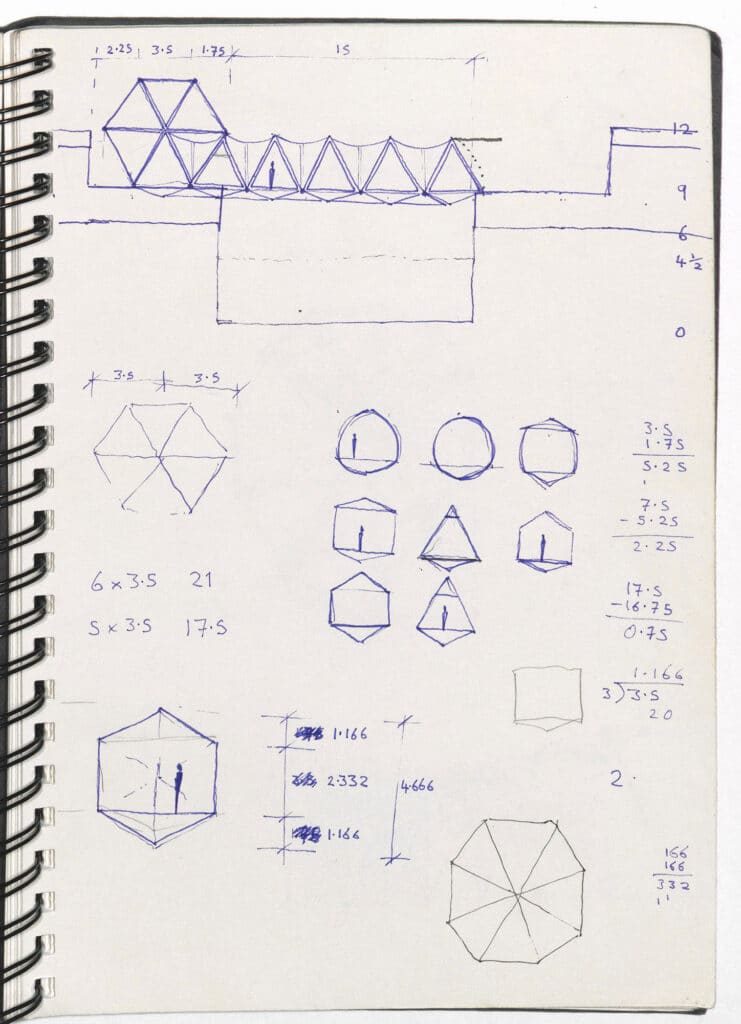 2.25 3.5 1.75 15
12
9
6
4 1/2
0
3.5 3.5
3.5
1.75
5.25
7.5
- 5.25
2.25
6 x 3.5 21
5 x 3.5 17.5
17.5
-16.75
0.75
1.166
3)3.5
20
1.166
2.332
4.666
1.166
2.
166
166
332
11